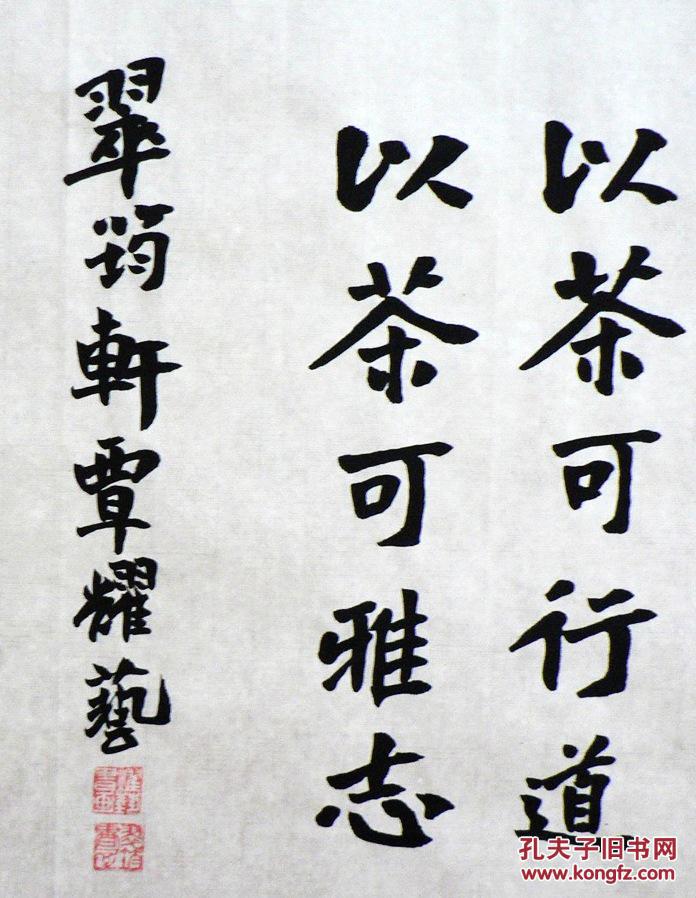 以茶可行道
以茶可雅志
翠筠軒覃耀藝
孔夫子旧书网
www.kongfz.com